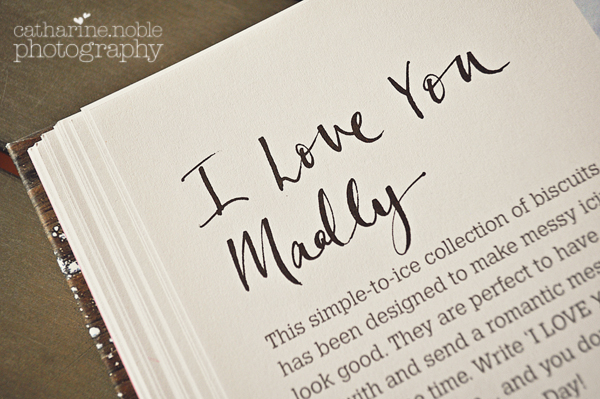 catharine.noble
photography
I Love You
Madly
This simple-to-ice collection of biscuits
has been designed to make messy
look good. They are perfect to have
with and send a romantic
time. Write 'I LOVE
and you
Day!